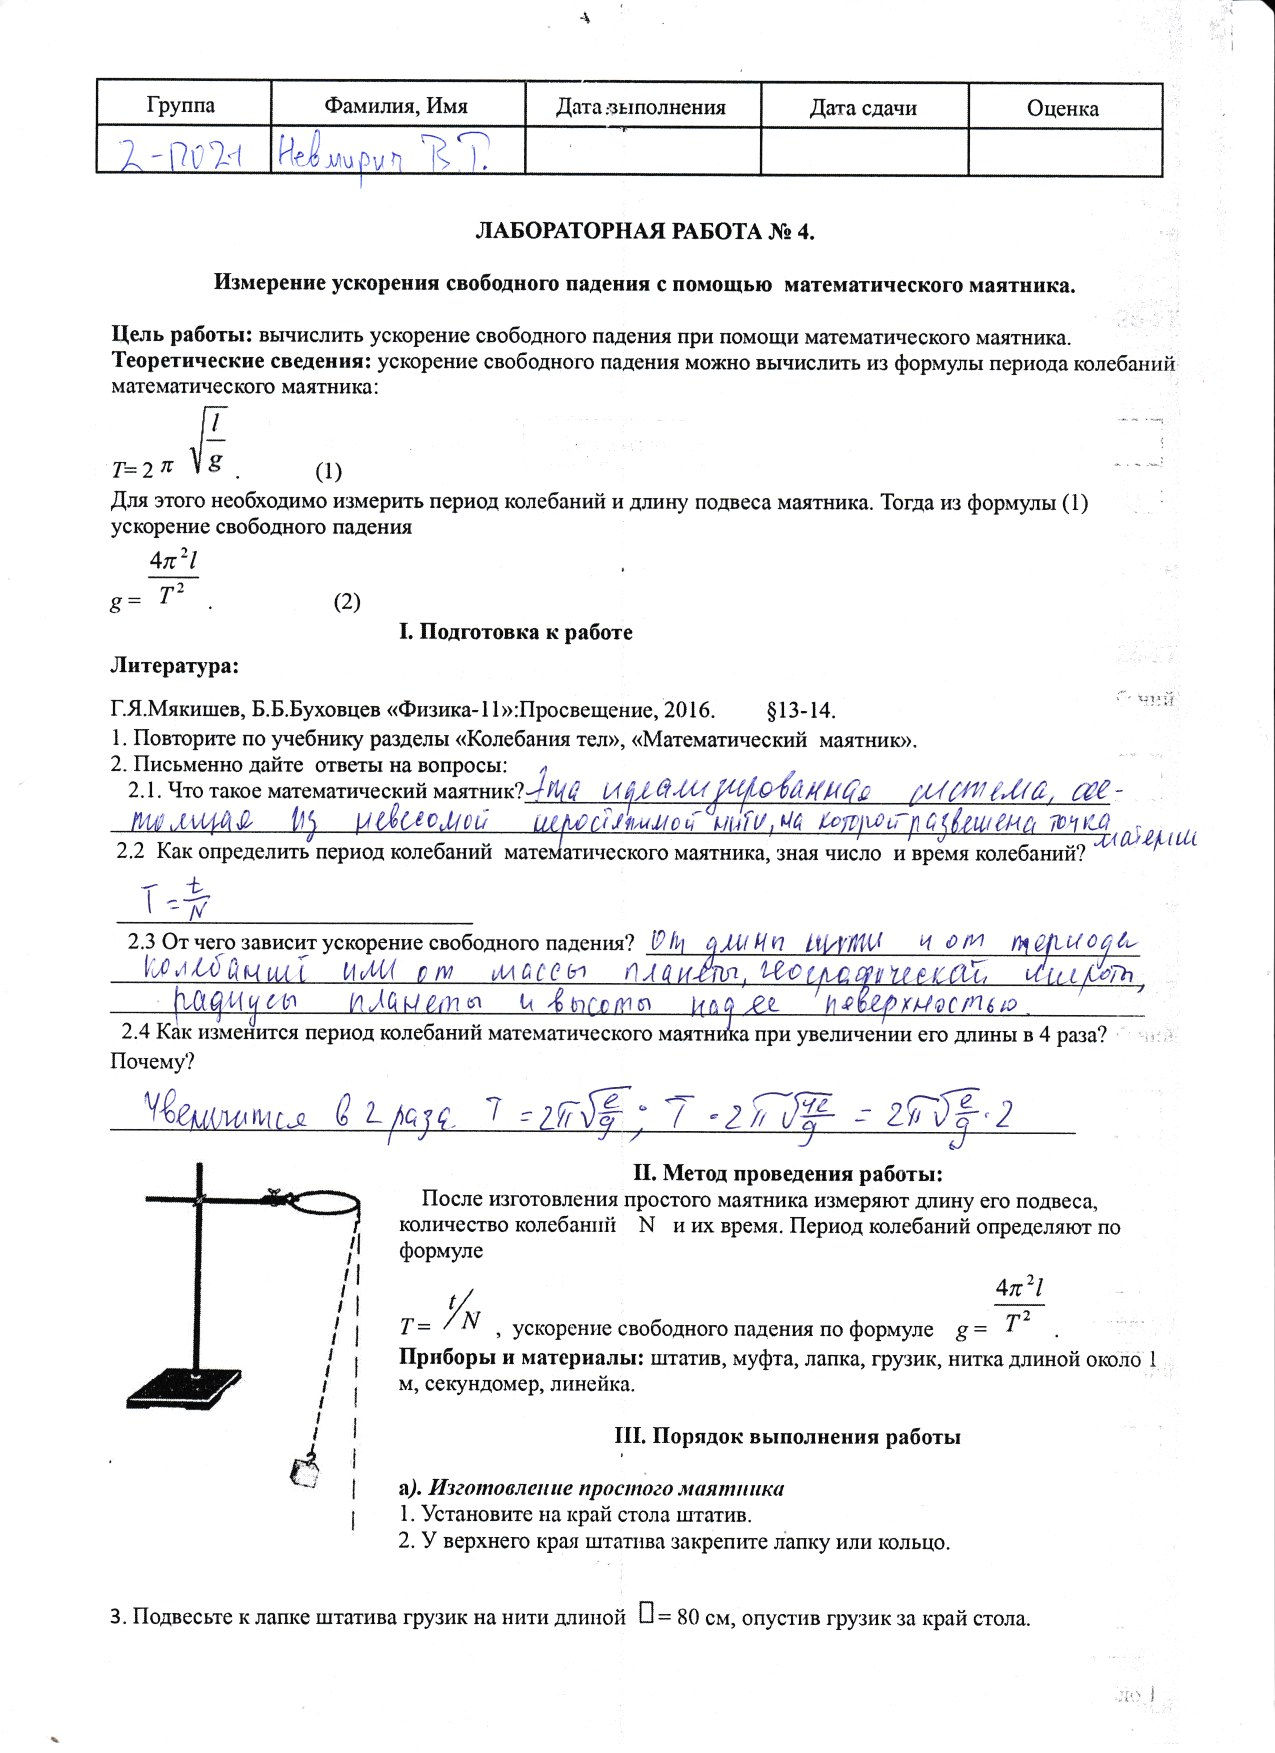 Группа Фамилия, Имя Дата выполнения Дата сдачи Оценка
2-ПО21 Невмирич В.Г.
ЛАБОРАТОРНАЯ РАБОТА № 4.
Измерение ускорения свободного падения с помощью математического маятника.
Цель работы: вычислить ускорение свободного падения при помощи математического маятника.
Теоретические сведения: ускорение свободного падения можно вычислить из формулы периода колебаний
математического маятника:
T= 2 π √(l/g) . (1)
Для этого необходимо измерить период колебаний и длину подвеса маятника. Тогда из формулы (1)
ускорение свободного падения
g = 4π²l / T² . (2)
I. Подготовка к работе
Литература:
Г.Я.Мякишев, Б.Б.Буховцев «Физика-11»:Просвещение, 2016. §13-14.
1. Повторите по учебнику разделы «Колебания тел», «Математический маятник».
2. Письменно дайте ответы на вопросы:
2.1. Что такое математический маятник? Эта идеализированная система, сос-
тоящая из невесомой нерастяжимой нити, на которой развешена точка
материи
2.2 Как определить период колебаний математического маятника, зная число и время колебаний?
T = t/N
2.3 От чего зависит ускорение свободного падения? От длины нити и от периода
колебаний или от массы планеты, географической широты,
радиусы планеты и высоты над ее поверхностью.
2.4 Как изменится период колебаний математического маятника при увеличении его длины в 4 раза?
Почему?
Увеличится в 2 раза T = 2π√(l/g) ; T = 2π√(4l/g) = 2π√(l/g) · 2
II. Метод проведения работы:
После изготовления простого маятника измеряют длину его подвеса,
количество колебаний N и их время. Период колебаний определяют по
формуле
T = t/N , ускорение свободного падения по формуле g = 4π²l / T² .
Приборы и материалы: штатив, муфта, лапка, грузик, нитка длиной около 1
м, секундомер, линейка.
III. Порядок выполнения работы
а). Изготовление простого маятника
1. Установите на край стола штатив.
2. У верхнего края штатива закрепите лапку или кольцо.
3. Подвесьте к лапке штатива грузик на нити длиной = 80 см, опустив грузик за край стола.